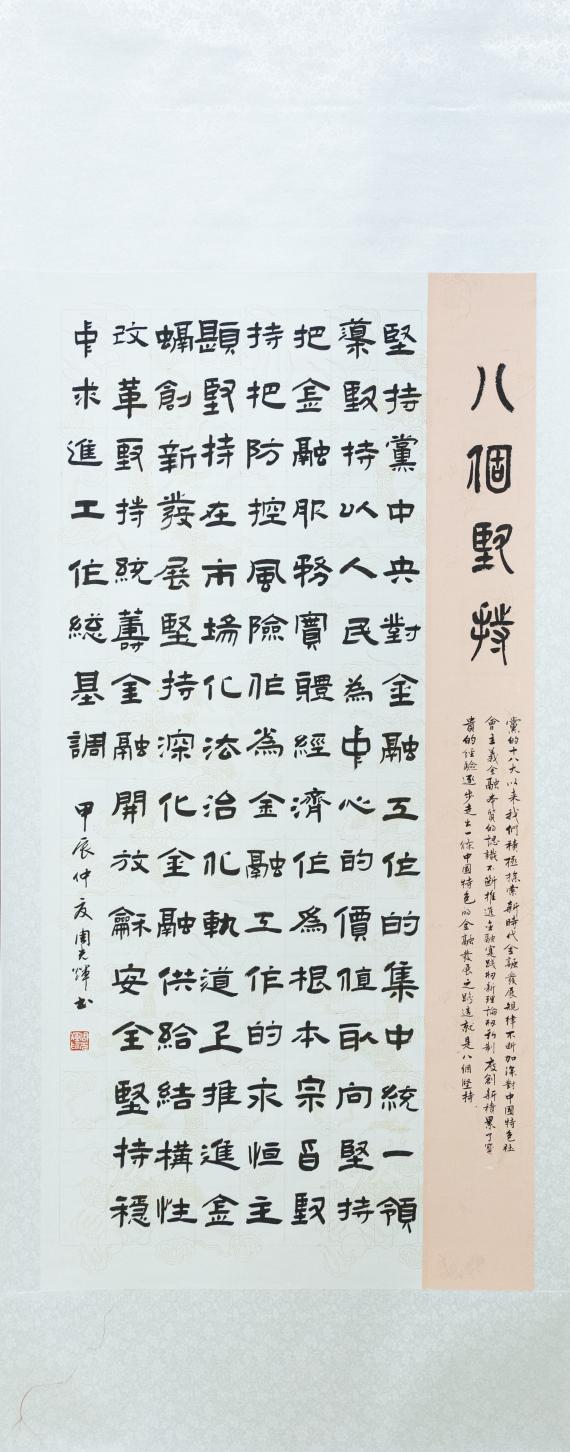 八個堅持
黨的十八大以来我們積極探索新時代金融發展規律不断加深對中國特色社
會主義金融本質的認識不斷推進金融實踐刱新理論刱新制度創新積累了寶
貴的经驗逐步走出一條中國特色的金融發展之路這就是八個堅持
堅持黨中央對金融工作的集中統一領
導堅持以人民為中心的價值取向堅持
把金融服務實體經濟作為根本宗旨堅
持把防控風險作為金融工作的永恒主
題堅持在市場化法治化軌道上推進金
融創新發展堅持深化金融供給結構性
改革堅持統籌金融開放龢安全堅持穩
中求進工作總基調
甲辰仲夏周光輝书